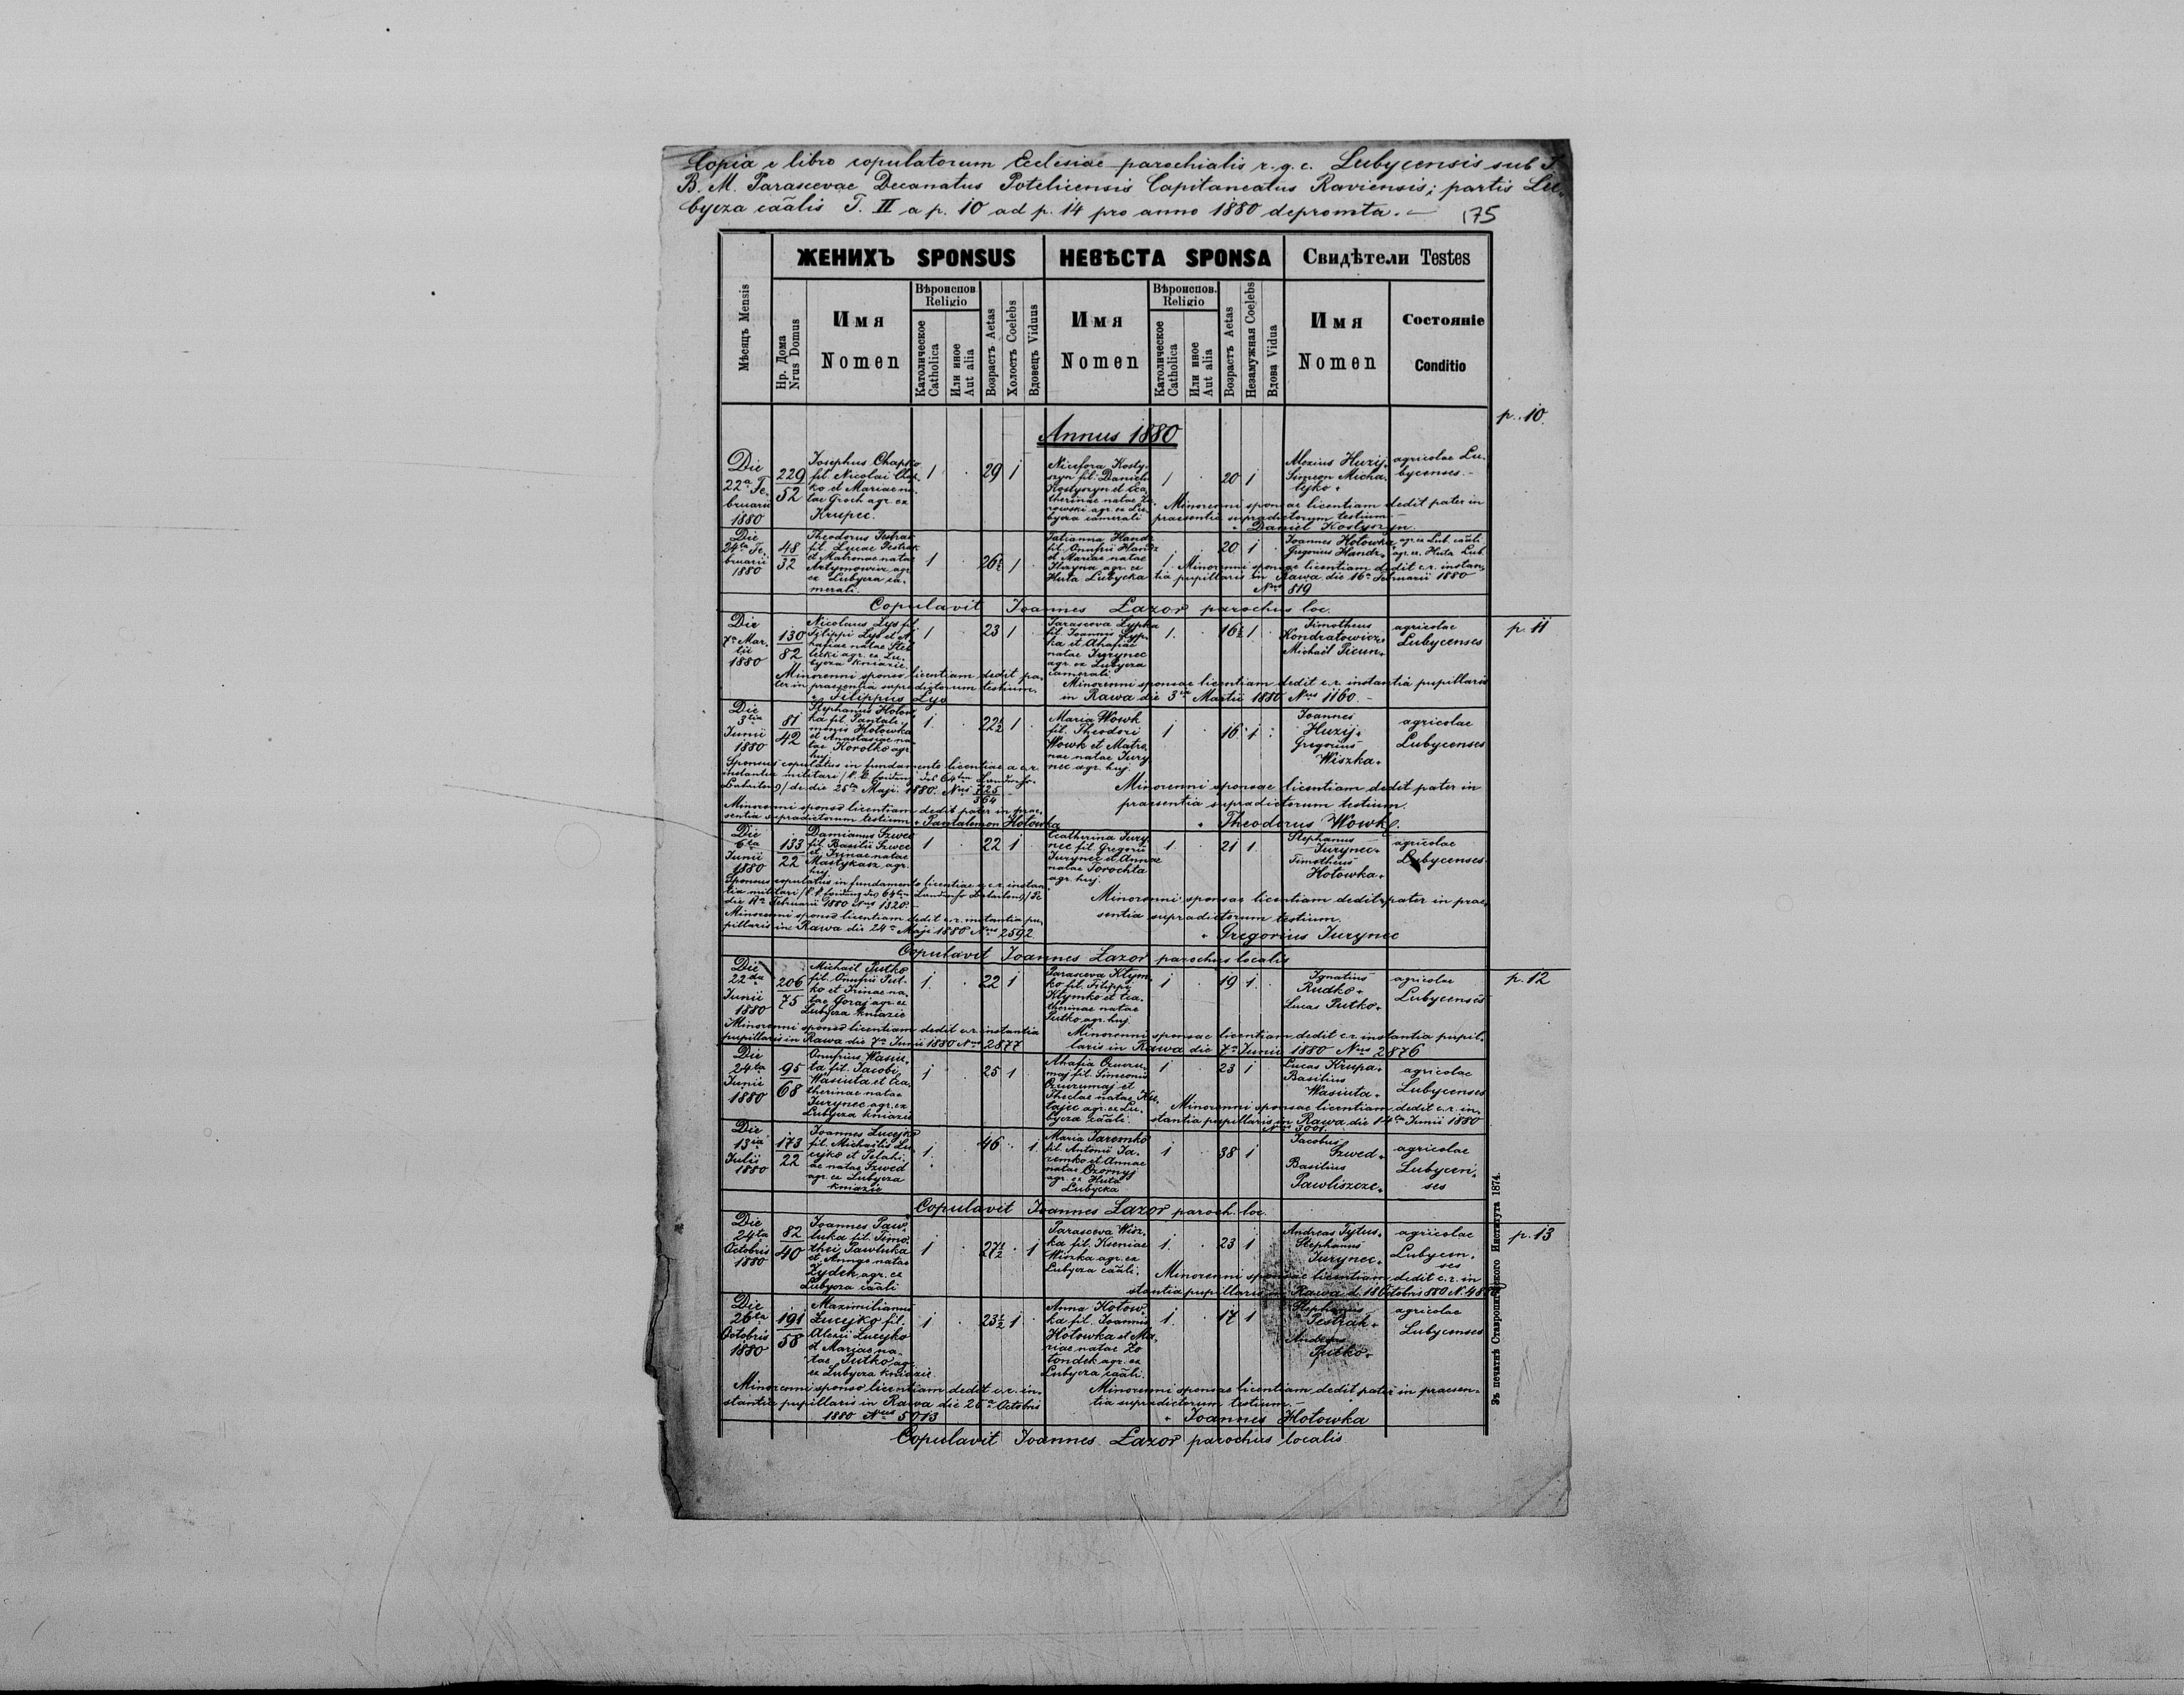 Copia e libro copulatorum Eclesiae parochialis r. g. c. Lubycensis sub T.
B. M. Parascevae Decanatus Potelicensis Capitaneatus Raviensis; partis Lu-
bycza cãalis T. II a p. 10 ad p. 14 pro anno 1880 depromta.
175
ЖЕНИХЪ SPONSUS НЕВѢСТА SPONSA Свидѣтели Testes
Мѣсяцъ Mensis
Нр. Дома
Nrus Domus
Имя
Nomen
Вѣроиспов.
Religio
Католическое
Catholica
Или иное
Aut alia
Возрастъ Aetas
Холостъ Coelebs
Вдовецъ Viduus
Имя
Nomen
Вѣроиспов.
Religio
Католическое
Catholica
Или иное
Aut alia
Возрастъ Aetas
Незамужная Coelebs
Вдова Vidua
Имя
Nomen
Состояніе
Conditio
p. 10.
Annus 1880
Die
22a Fe-
bruarii
1880
229
52
Josephus Chapko
fil. Nicolai Chap-
ko et Mariae na-
tae Groch agr. ex
Krupiec.
1 29 1
Nicefora Kosty-
szyn fil. Danielis
Kostyszyn et Ca-
therinae natae
agr. ex Lu-
bycza camerali
1 20 1
Alexius Huzij
Simeon Micha-
lejko
agricolae Lu-
bycenses.
Minorenni sponsae licentiam dedit pater in
praesentia supradictorum testium
Daniel Kostyszyn.
Die
24ta Fe-
bruarii
1880
48
32
Theodorus Pestrak
fil. Lucae Pestrak
et Matronae natae
Artymowicz agr.
ex Lubycza ca-
merali.
1 26½ 1
Tatianna Handz
fil. Onufrii Handz
et Mariae natae
agr. ex
Huta Lubycka
1 20 1
Joannes Hotowka agr. ex Lub. cãali
Gregorius Handz agr. ex Huta Lub.
Minorenni sponsae licentiam dedit c. r. instan-
tia pupillaris in Rawa die 16a Februarii 1880
Nrus 819
Copulavit Joannes Lazor parochus loc.
p. 11
Die
7a Mar-
tii
1880
130
82
Nicolaus Lys fil.
Filippi Lys et A-
hafiae natae Stel-
lecki agr. ex Lu-
bycza kniazie.
1 23 1
Parasceva Lypka
fil. Joannis Lyp-
ka et Ahafiae
natae Jurynec
agr. ex Lubycza
camerali.
1 16½ 1
Timotheus
Kondratowicz
Michael Picun
agricolae
Lubycenses
Minorenni sponso licentiam dedit pa-
ter in praesentia supradictorum testium.
Filippus Lys
Minorenni sponsae licentiam dedit c. r. instantia pupillaris
in Rawa die 3tia Martii 1880 Nrus 1160
Die
3tia
Junii
1880
81
42
Stephanus Hotow-
ka fil. Pantale-
monis Hotowka
et Anastasiae na-
tae Korotko agr.
huj.
1 22½ 1
Maria Wowk
fil. Theodori
Wowk et Matro-
nae natae Jury-
nec agr. huj.
1 16 1
Joannes
Huzij
Gregorius
Wiszka
agricolae
Lubycenses
Sponsus copulatus in fundamento licentiae a c. r.
instantia militari
de die 25ta Maji 1880 Nrus 725
364
Minorenni sponso licentiam dedit pater in prae-
sentia supradictorum testium Pantalemon Hotowka
Minorenni sponsae licentiam dedit pater in
praesentia supradictorum testium.
Theodorus Wowk.
Die
6ta
Junii
1880
133
22
Damianus Szwec
fil. Basilii Szwec
et Irinae natae
Mastykasz agr.
huj.
1 22 1
Catherina Jury-
nec fil. Gregorii
Jurynec et Annae
natae Torochta
agr. huj.
1 21 1
Stephanus
Jurynec
Timotheus
Hotowka
agricolae
Lubycenses
Sponsus copulatus in fundamento licentiae a c. r. instan-
tia militari
die 17a Februarii 1880 Nrus 1320.
Minorenni sponso licentiam dedit c. r. instantia pu-
pillaris in Rawa die 24a Maji 1880 Nrus 2592
Minorenni sponsae licentiam dedit pater in prae-
sentia supradictorum testium.
Gregorius Jurynec
Copulavit Joannes Lazor parochus localis
p. 12
Die
22da
Junii
1880
206
75
Michael Putko
fil. Onufrii Put-
ko et Irinae na-
tae Goraj agr. ex
Lubycza kniazie
1 22 1
Parasceva Klym-
ko fil. Filippi
Klymko et Ca-
therinae natae
Putko agr. huj.
1 19 1
Ignatius
Rudko
Lucas Putko
agricolae
Lubycenses
Minorenni sponso licentiam dedit c. r. instantia
pupillaris in Rawa die 7a Junii 1880 Nrus 2877
Minorenni sponsae licentiam dedit c. r. instantia pupil-
laris in Rawa die 7a Junii 1880 Nrus 2876
Die
24ta
Junii
1880
95
68
Onufrius Wasiu-
ta fil. Jacobi
Wasiuta et Ca-
therinae natae
Jurynec agr. ex
Lubycza kniazie
1 25 1
Ahafia
fil. Simeonis
et
Theclae natae
agr. ex Lu-
bycza cãali.
1 23 1
Lucas Krupa
Basilius
Wasiuta
agricolae
Lubycenses
Minorenni sponsae licentiam dedit c. r. in-
stantia pupillaris in Rawa die 14ta Junii 1880
Nrus 3001.
Die
13ia
Julii
1880
173
22
Joannes Lucejko
fil. Michaelis Lu-
cejko et Pelahi-
ae natae Szwed
agr. ex Lubycza
kniazie
1 46 1
Maria Jaremko
fil. Antonii Ja-
remko et Annae
natae Czornyj
agr. ex Huta
Lubycka
1 38 1
Jacobus
Szwed
Basilius
Pawliszcze
agricolae
Lubycen-
ses
Copulavit Joannes Lazor paroch. loc.
p. 13
Die
24ta
Octobris
1880
82
40
Joannes Paw-
luka fil. Timo-
thei Pawluka
et Annae natae
Zydek agr. ex
Lubycza cãali
1 27½ 1
Parasceva Wisz-
ka fil. Kseniae
Wiszka agr. ex
Lubycza cãali.
1 23 1
Andreas Tytus
Stephanus
Jurynec
agricolae
Lubycen-
ses
Minorenni sponsae licentiam dedit c. r. in
stantia pupillaris in Rawa d. 18 Octobris 880 N.
Die
26ta
Octobris
1880
191
58
Maximilianus
Lucejko fil.
Alexii Lucejko
et Mariae na-
tae Putko agr.
ex Lubycza kniazie.
1 23½ 1
Anna Hotow-
ka fil. Joannis
Hotowka et Ma-
riae natae Zo
tondek agr. ex
Lubycza cãali.
1 17 1
Stephanus
Pestrak
Andreas
Putko
agricolae
Lubycenses
Minorenni sponso licentiam dedit c. r. in-
stantia pupillaris in Rawa die 25a Octobris
1880 Nrus 5013
Minorenni sponsae licentiam dedit pater in praesen-
tia supradictorum testium.
Joannes Hotowka
Copulavit Joannes Lazor parochus localis
Зъ печатнѣ Ставропигійского Института 1874.